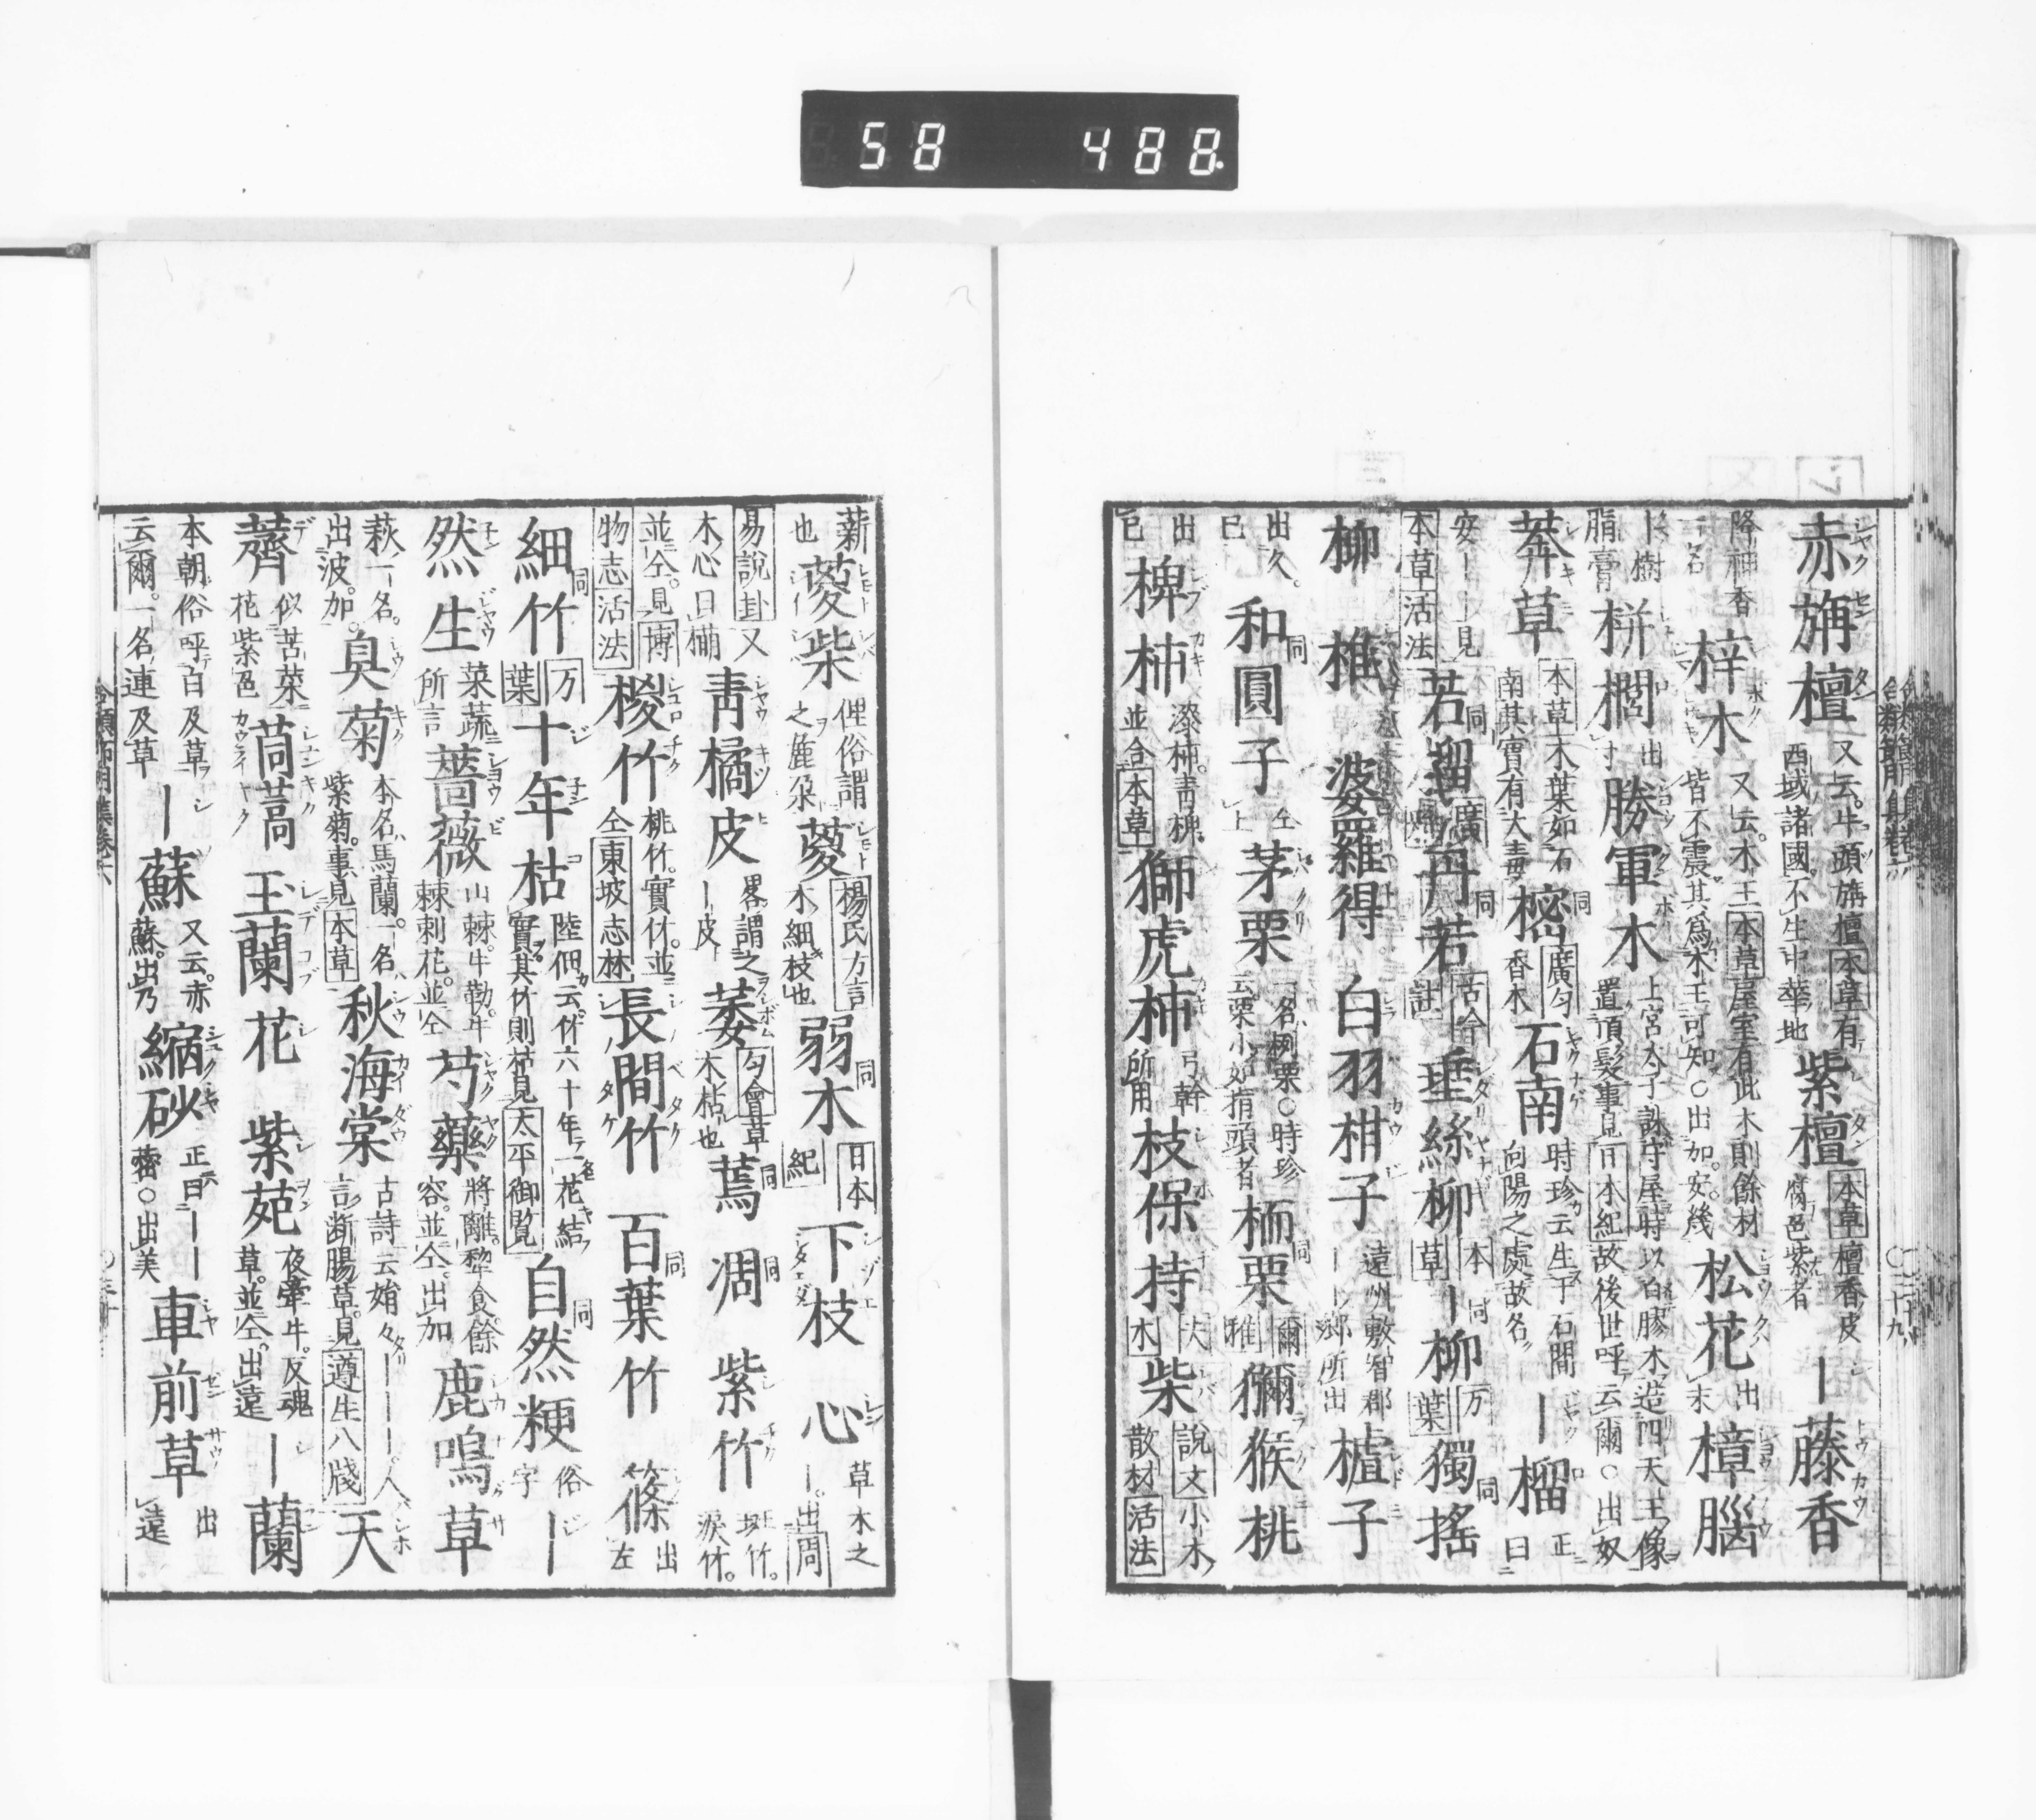 58 488
赤旃檀 又云。牛頭旃檀本草有 西域諸國。不生中華地 紫檀 本草檀香皮 腐色紫者 ー藤香
降神香 一名 梓木 又云。木王本草屋室有此木則餘材 皆不震其爲木王可知○出加。安。幾 松花 出 末 樟腦
ー樹 脂膏 栟櫚 出 寸 勝軍木 上宮太子誅守屋時以白膠木造四天王像 置頂髮事見日本紀故後世呼云爾○出奴
莽草 本草木葉如石 南其實有大毒 樒 同 廣匀 香木 石南 時珍云生于石間 向陽之處故名 ー榴 正 曰
安ーー見 本草活法 若榴 同 廣 丹若 同 古今註 垂絲柳 本草 ー柳 同 万葉 獨搖 同
柳 椎 婆羅得 白羽柑子 遠州敷智郡 ーー鄉所出 櫨子
出久。 已上 和圓子 同 仝 茅栗 一名栵栗○時珍 云栗小如指頭者 栭栗 同 爾雅 獼猴桃
出 已上 椑柿 漆柿。青椑 並仝本草 獅虎柿 弓幹 所用 枝保持 木 柴 說文小木 散材活法
薪也 葼柴 俚俗謂 之麁朶 葼 楊氏方言 木細枝也 弱木 同 日本紀 下枝 心 草木之 ー。出周
易說卦又 木心曰樠 靑橘皮 畧謂之 ー皮 萎 匀會草 木枯也 蔫 同 凋 同 紫竹 斑竹。 淚竹。
並仝。見博 物志活法 椶竹 桃竹。實竹。並 仝東坡志林 長間竹 百葉竹 同 篠 出 左
細竹 同 万葉 十年枯 陸佃云。竹六十年一花結 實其竹則枯見太平御覧 自然粳 同 俗字 ー
然生 菜蔬 所言 薔薇 山棘。牛勒。牛 棘刺花。並仝 芍藥 將離。犂食。餘 容。並仝。出加 鹿鳴草
萩一名。 出波。加。 臭菊 本名馬蘭。一名 紫菊。事見本草 秋海棠 古詩云娋々ーーー。人 言断腸草。見遵生八牋 天
薺 似苦菜 花紫色 茼蒿 玉蘭花 紫苑 夜牽牛。反魂 草。並仝。出遠 ー蘭
本朝俗呼白及草 云爾。一名連及草 ー蘇 又云。赤 蘇。出乃 縮砂 正曰ーー 蔤○出美 車前草 出 遠